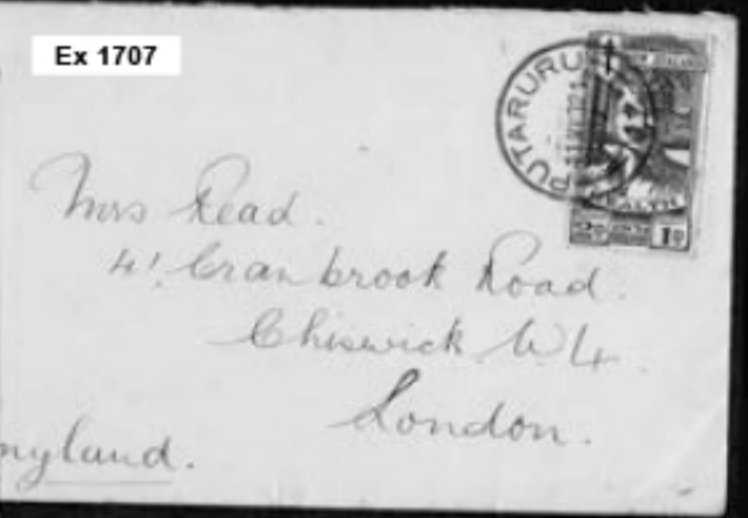 Ex 1707
PUTARURU
HEALTH
2D 1D
Mrs Read.
41 Cranbrook Road.
Chiswick W4.
London.
ngland.